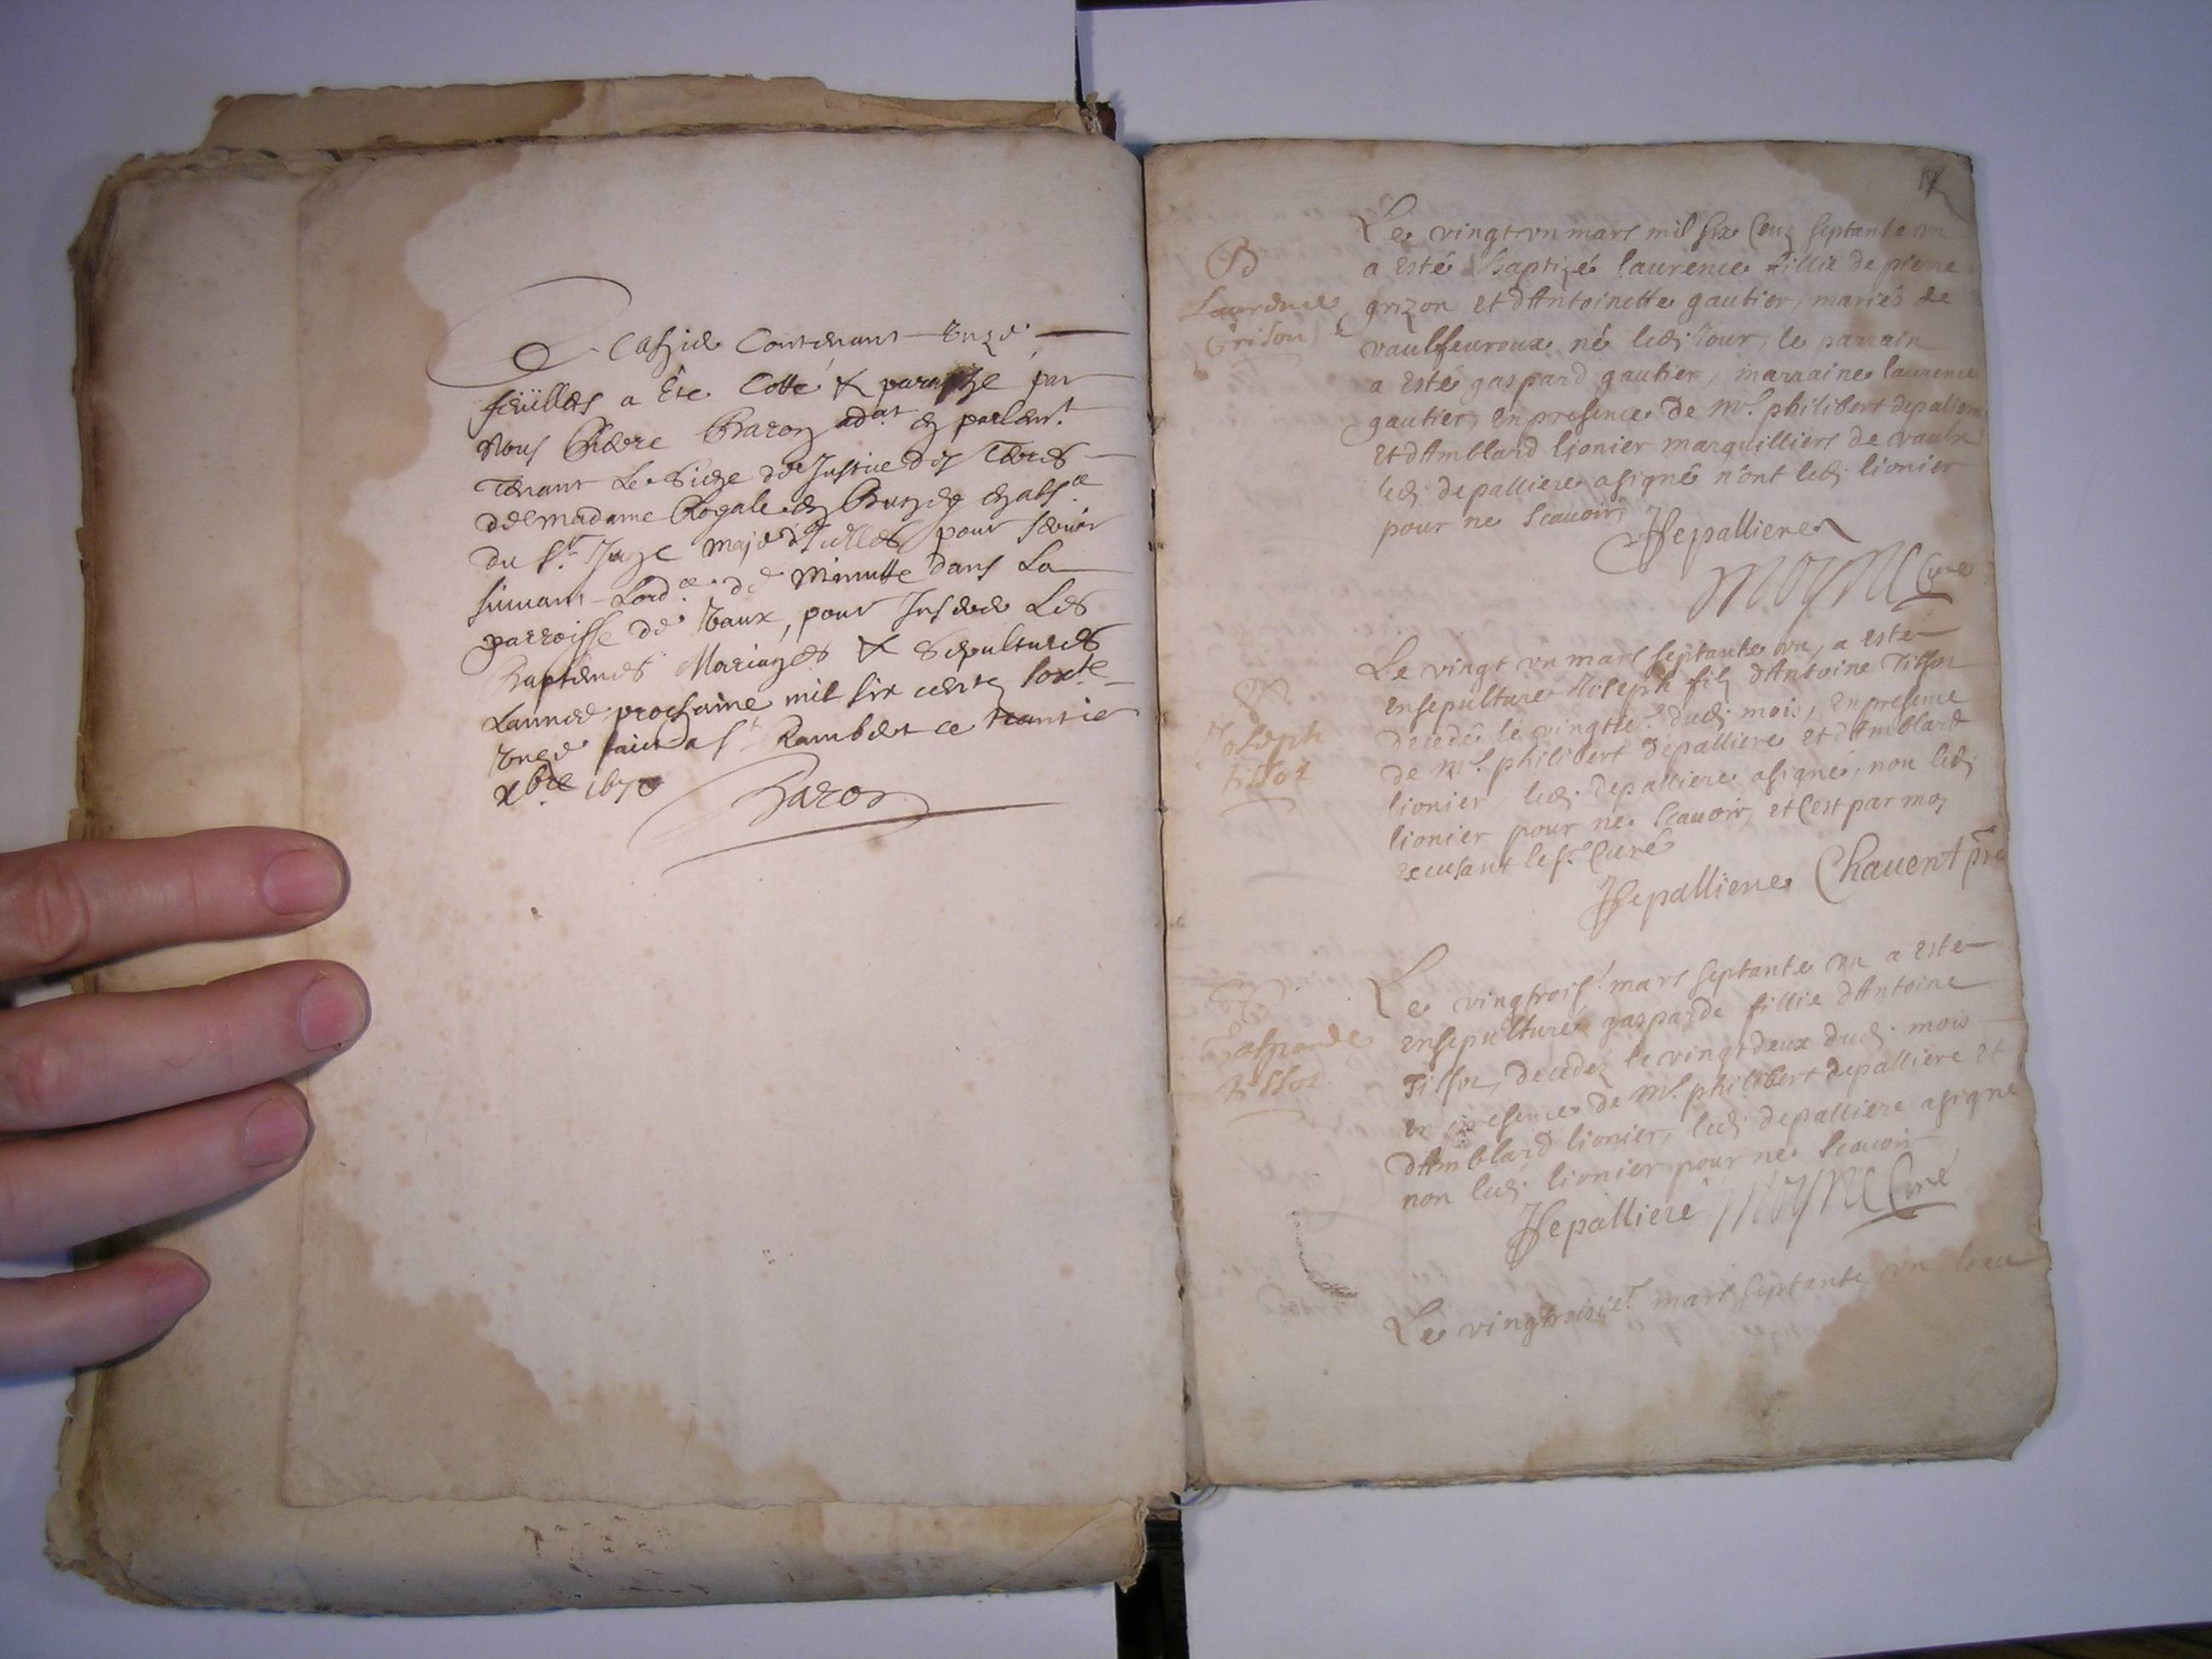 Ce Cahier Contenant Unze
feüilles a Ete Cotté & paraphé par
Nous Pierre Baron adat en parlemt
Tenant Le Siege de Justice des Terres
de madame Royale en Bugey en absce
du Sr. Juge maje d'Icelles pour servir
suivant Lordce de Minutte dans La
parroisse de Vaux, pour Inserer Les
Baptemes Mariages & Sepultures
Lannee prochaine mil six cents sexte
Unze fait a St Rambert ce trentie
xbre 1670
Baron
B
Laurence
Grison
Le vingt vn mars mil six Cens septante vn
a esté baptizé laurence fillie de pierre
grizon et dAntoinette gautier, mariés de
vaulfeuroux né ledi Iour, le parrain
a esté gaspard gautier, marraine laurence
gautier, en presence de Mr. philibert depaliere
et dAmblard lionier marguilliers de vaulx
ledi depalliere asigné n'ont ledi lionier
pour ne scauoir
Depalliere
Moyne Curé
Joseph
tissot
Le vingt vn mars septante vn, a esté
ensepulturé Joseph filz dAntoine Tissot
decedé le vingtie. dudi mois, en presence
de Mr. philibert depalliere et dAmblard
lionier, ledi. depalliere asigné, non ledi
lionier pour ne scauoir, et c'est par moy
excusant le sr. Curé
Depalliere Chauent pre
Gasparde
tissot
Le vingtrois. mars septante vn a esté
ensepulturé gasparde fillie dAntoine
Tissot, decedez le vingt deux dudi mois
en presence de Mr. philibert depalliere et
dAmblard lionier, ledi depalliere asigné
non ledi lionier pour ne scauoir
Depalliere Moyne Curé
Le vingtroisie. mars septante vn,